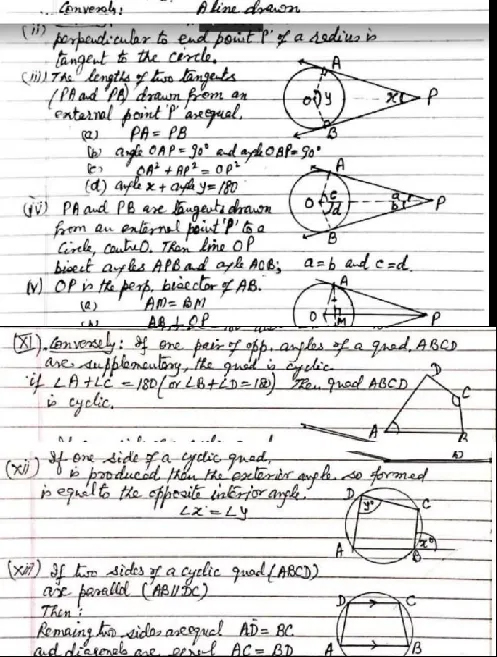 Conversely: A line drawn
(ii) perpendicular to end point 'P' of a radius is
tangent to the circle.
(iii) The lengths of two tangents
(PA and PB) drawn from an
external point 'P' are equal.
(a) PA = PB
(b) angle OAP = 90° and angle OBP = 90°
(c) OA² + AP² = OP²
(d) angle x + angle y = 180
A
O
y
x
P
B
(iv) PA and PB are tangents drawn
from an external point 'P' to a
Circle, centre O. Then line OP
bisect angles APB and angle AOB; a=b and c=d.
A
O
c
d
a
b
P
B
(v) OP is the perp. bisector of AB.
(a) AM = BM
AB ⊥ OP
A
O
M
P
(XI). Conversely: If one pair of opp. angles of a quad. ABCD
are supplementary, the quad is cyclic.
if ∠A+∠C = 180 (or ∠B+∠D = 180) Then quad ABCD
is cyclic.
D
C
A
B
(xii) If one side of a cyclic quad,
is produced then the exterior angle, so formed
is equal to the opposite interior angle.
∠x = ∠y
D
y°
C
A
B
x°
(xiii) If two sides of a cyclic quad (ABCD)
are parallel (AB∥DC)
Then:
Remaing two sides are equal AD = BC
and diagonals are equal AC = BD
D
C
A
B